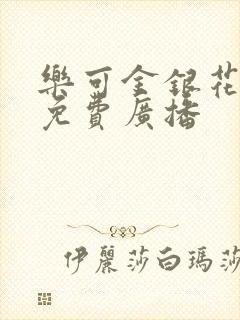 樂可金銀花
免費廣播
伊麗莎白瑪莎